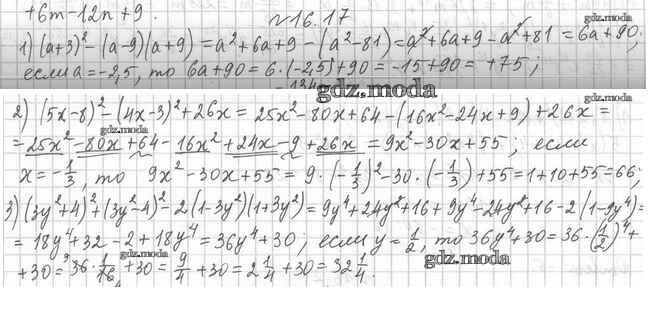 +6m-12n+9.
№16.17
gdz.moda
1) (a+3)²-(a-9)(a+9)=a²+6a+9-(a²-81)=a²+6a+9-a²+81=6a+90,
gdz.moda
если a=-2,5, то 6a+90=6·(-2,5)+90=-15+90=+75;
gdz.moda
gdz.moda
2) (5x-8)²-(4x-3)²+26x=25x²-80x+64-(16x²-24x+9)+26x=
gdz.moda
=25x²-80x+64-16x²+24x-9+26x=9x²-30x+55; если
x=-1/3, то 9x²-30x+55=9·(-1/3)²-30·(-1/3)+55=1+10+55=66;
gdz.moda
3) (3y²+4)²+(3y²-4)²-2(1-3y²)(1+3y²)=9y⁴+24y²+16+9y⁴-24y²+16-2(1-9y⁴)=
=18y⁴+32-2+18y⁴=36y⁴+30; если y=1/2, то 36y⁴+30=36·(1/2)⁴+
gdz.moda
+30=36·1/16+30=9/4+30=2 1/4+30=32 1/4.
gdz.moda